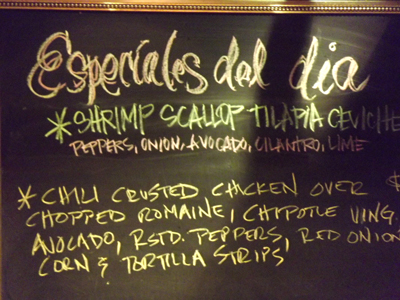 Especiales del dia
* SHRIMP SCALLOP TILAPIA CEVICHE
PEPPERS, ONION, AVOCADO, CILANTRO, LIME
* CHILI CRUSTED CHICKEN OVER $
CHOPPED ROMAINE, CHIPOTLE VING.
AVOCADO, RSTD. PEPPERS, RED ONION
CORN & TORTILLA STRIPS